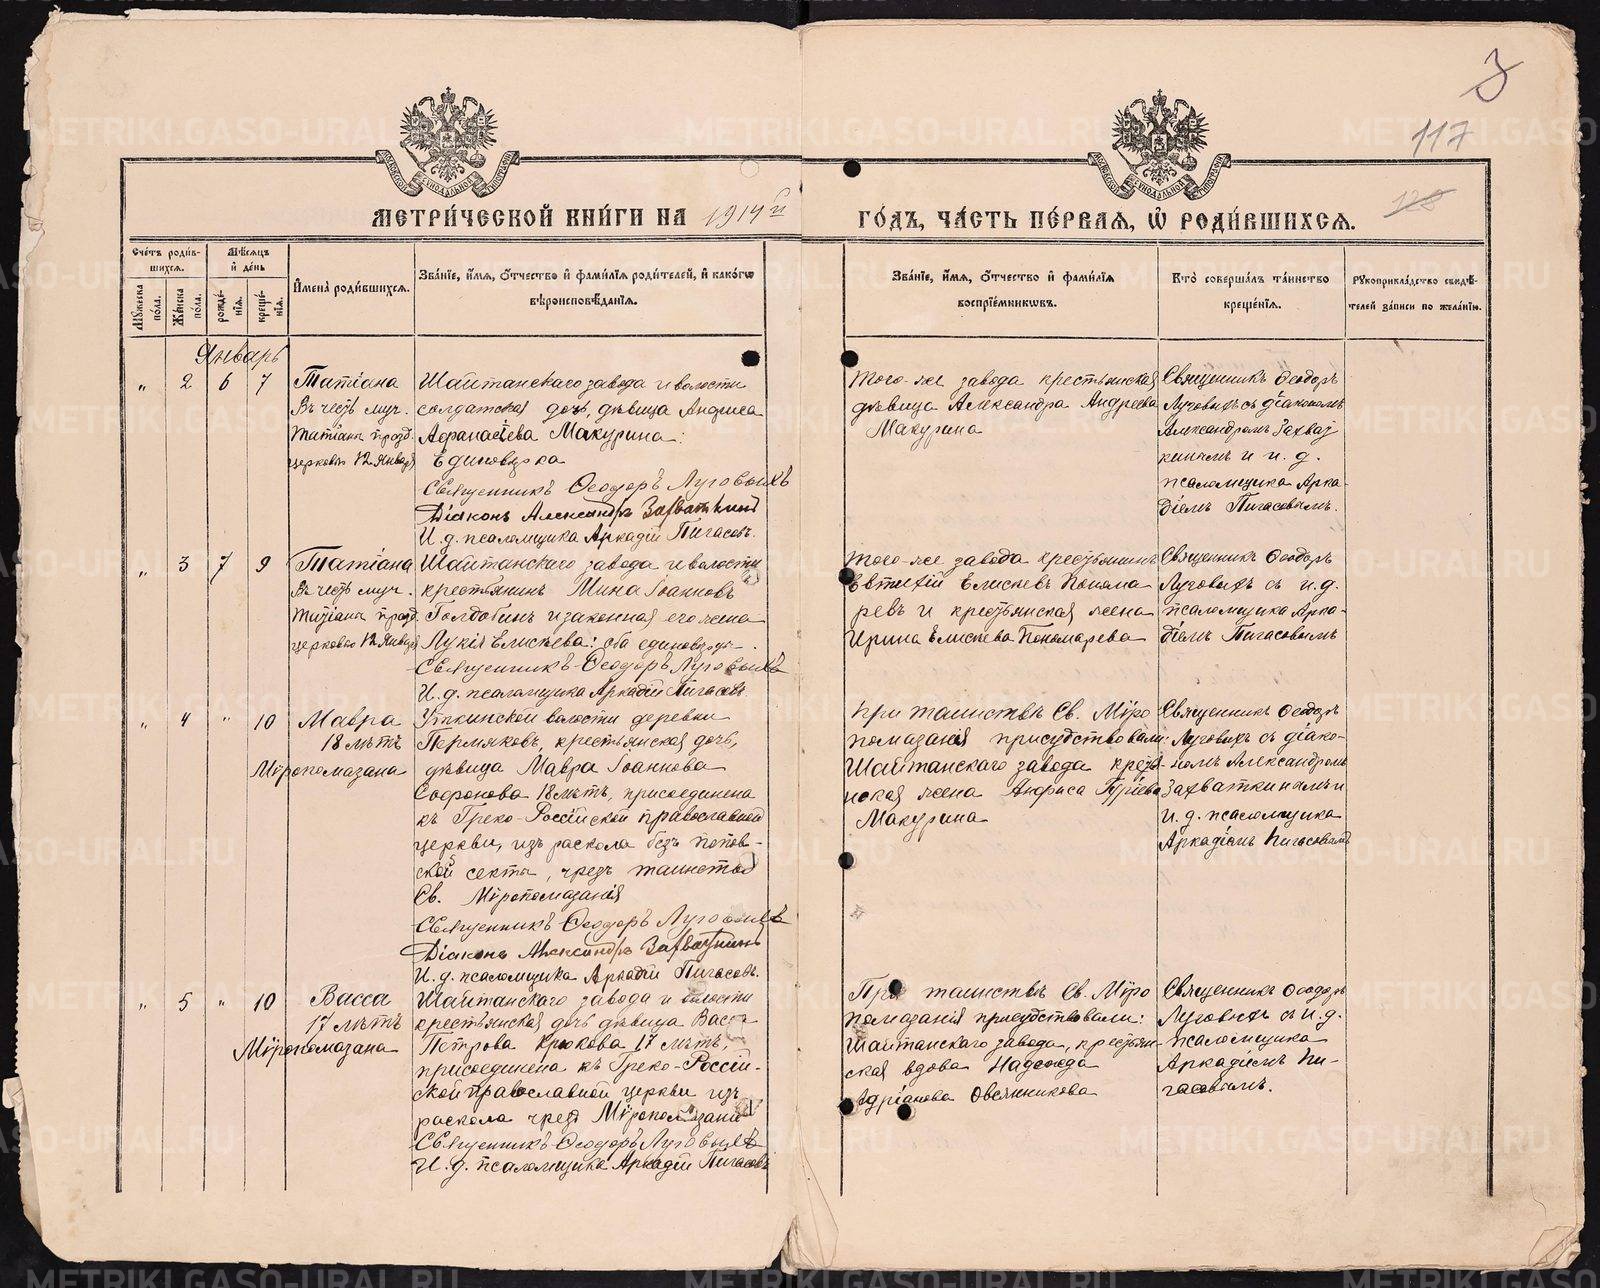 З
117
МЕТРИ́ЧЕСКОЙ КНИ́ГИ НА 1914й ГО́ДЪ, ЧА́СТЬ ПЕ́РВАЯ, Ѽ РОДИ́ВШИХСЯ.
Сче́тъ роди́в-
шихся.
Мѣ́сяцъ
и́ де́нь
Мꙋ́жеска
по́ла.
Же́нска
по́ла.
рожде́-
нїя.
креще́-
нїя.
И҆мена̀ роди́вшихся.
Зва́нїе, и҆́мя, ѻ҆́тчество и҆ фами́лїя роди́телей, и҆ како́гѡ
вѣроисповѣ́данїя.
Зва́нїе, и҆́мя, ѻ҆́тчество и҆ фами́лїя
воспрїе́мникѡвъ.
Кто̀ соверша́лъ та́инство
креще́нїя.
Рꙋкоприкла́дство свидѣ́-
телей за́писи по жела́нїю.
Январь
" 2 6 7
Татіана
Въ честь муч.
Татіаны празд.
церковію 12 Января
Шайтанскаго завода и волости
солдатская дочь, дѣвица Анфиса
Афанасіева Макурина:
Единовѣрка
Священникъ Ѳеодоръ Луговыхъ
Діаконъ Александръ Захваткинъ
И. д. псаломщика Аркадій Пигасовъ.
Того-же завода крестьянская
дѣвица Александра Андреева
Макурина
Священникъ Ѳеодоръ
Луговыхъ съ діакономъ
Александромъ Захват
кинымъ и и. д.
псаломщика Арка-
діемъ Пигасовымъ.
" 3 7 9
Татіана
Въ честь муч.
Татіаны празд.
церковію 12 Января
Шайтанскаго завода и волости
крестьянинъ Мина Іоанновъ
Голдобинъ и законная его жена
Лукія Елисѣева: оба единовѣрцы.
Священникъ Ѳеодоръ Луговыхъ
И. д. псаломщика Аркадій Пигасовъ
Того-же завода крестьянинъ
Евтихій Елисѣевъ Понома
ревъ и крестьянская жена
Ирина Елисѣева Пономарева
Священникъ Ѳеодоръ
Луговыхъ съ и. д.
псаломщика Арка-
діемъ Пигасовымъ
" 4 " 10
Мавра
18 лѣтъ
Мѵропомазана
Уткинской волости деревни
Пермяковъ, крестьянская дочь,
дѣвица Мавра Іоаннова
Софронова 18 лѣтъ, присоединена
къ Греко-Россійской православной
церкви, изъ раскола безъ попов-
ской секты, чрезъ таинство
Св. Мѵропомазанія
Священникъ Ѳеодоръ Луговыхъ
Діаконъ Александръ Захваткинъ
И. д. псаломщика Аркадій Пигасовъ.
При таинствѣ Св. Мѵро
помазанія присудствовали:
Шайтанскаго завода кресть-
нская жена Анфиса Гуріева
Макурина
Священникъ Ѳеодоръ
Луговыхъ съ діако-
номъ Александромъ
Захваткинымъ и
и. д. псаломщика
Аркадіемъ Пигасовымъ
" 5 " 10
Васса
17 лѣтъ
Мѵропомазана
Шайтанскаго завода и волости
крестьянская дочь дѣвица Васса
Петрова Крюкова 17 лѣтъ,
присоединена къ Греко-Россій-
ской православной церкви изъ
раскола чрезъ Мѵропомазаніе
Священникъ Ѳеодоръ Луговыхъ
И. д. псаломщика Аркадій Пигасовъ
При таинствѣ Св. Мѵро
помазанія присудствовали:
Шайтанскаго завода, крестьян-
ская вдова Надежда
Адріанова Овсянникова
Священникъ Ѳеодоръ
Луговыхъ съ и. д.
псаломщика
Аркадіемъ Пи-
гасовымъ.
METRIKI.GASO-URAL.RU